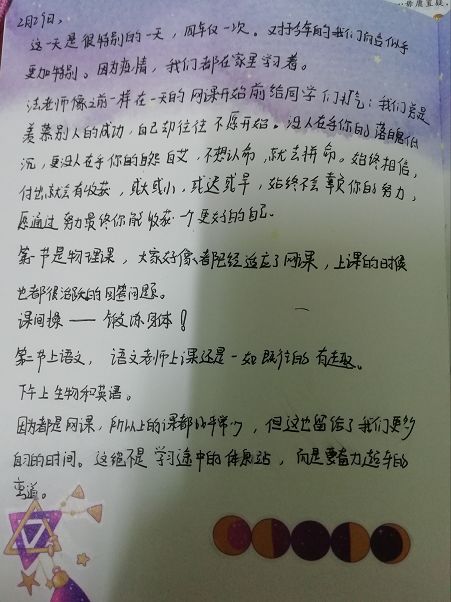 …毋庸置疑
2月29日,
这一天是很特别的一天，四年仅一次。对于今年的我们而言似乎
更加特别。因为疫情，我们都在家里学习着。
沈老师像之前一样在一天的网课开始前给同学们打气：我们总是
羡慕别人的成功，自己却往往不愿开始。没人在乎你的落魄低
沉，更没人在乎你的自怨自艾，不想认命，就去拼命。始终相信，
付出就会有收获，或大或小，或迟或早，始终不会辜负你的努力，
愿通过努力最终你能收获一个更好的自己。
第一节是物理课，大家好像都已经适应了网课，上课的时候
也都很活跃的回答问题。
课间操——锻炼身体！
第二节上语文，语文老师上课还是一如既往的有趣。
下午上生物和英语。
因为都是网课，所以上的课都比平常少，但这也留给了我们更多
自习的时间。这绝不是学习途中的休息站，而是要奋力超车的
弯道。